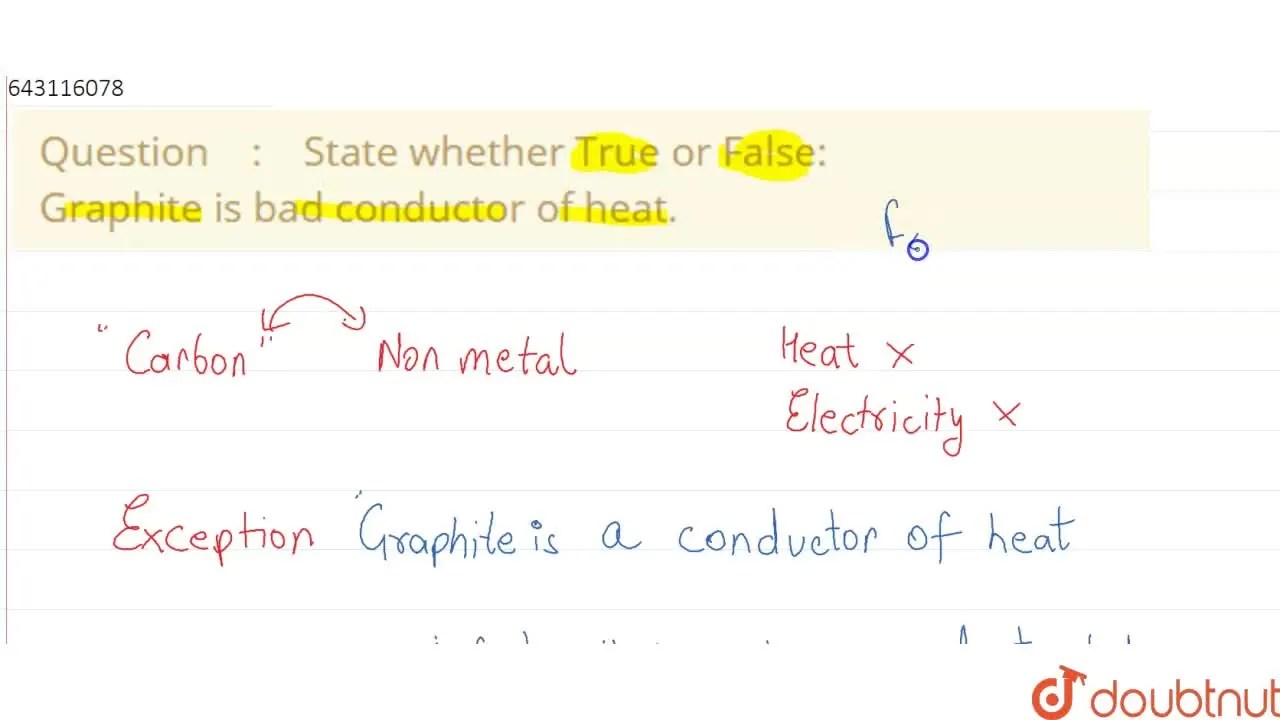 643116078
Question : State whether True or False:
Graphite is bad conductor of heat.
"Carbon" Non metal Heat ×
Electricity ×
Exception "Graphite is a conductor of heat
doubtnut